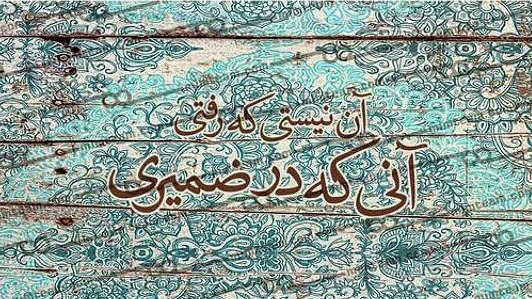 آن نیستی که رفتی
آنی که در ضمیری